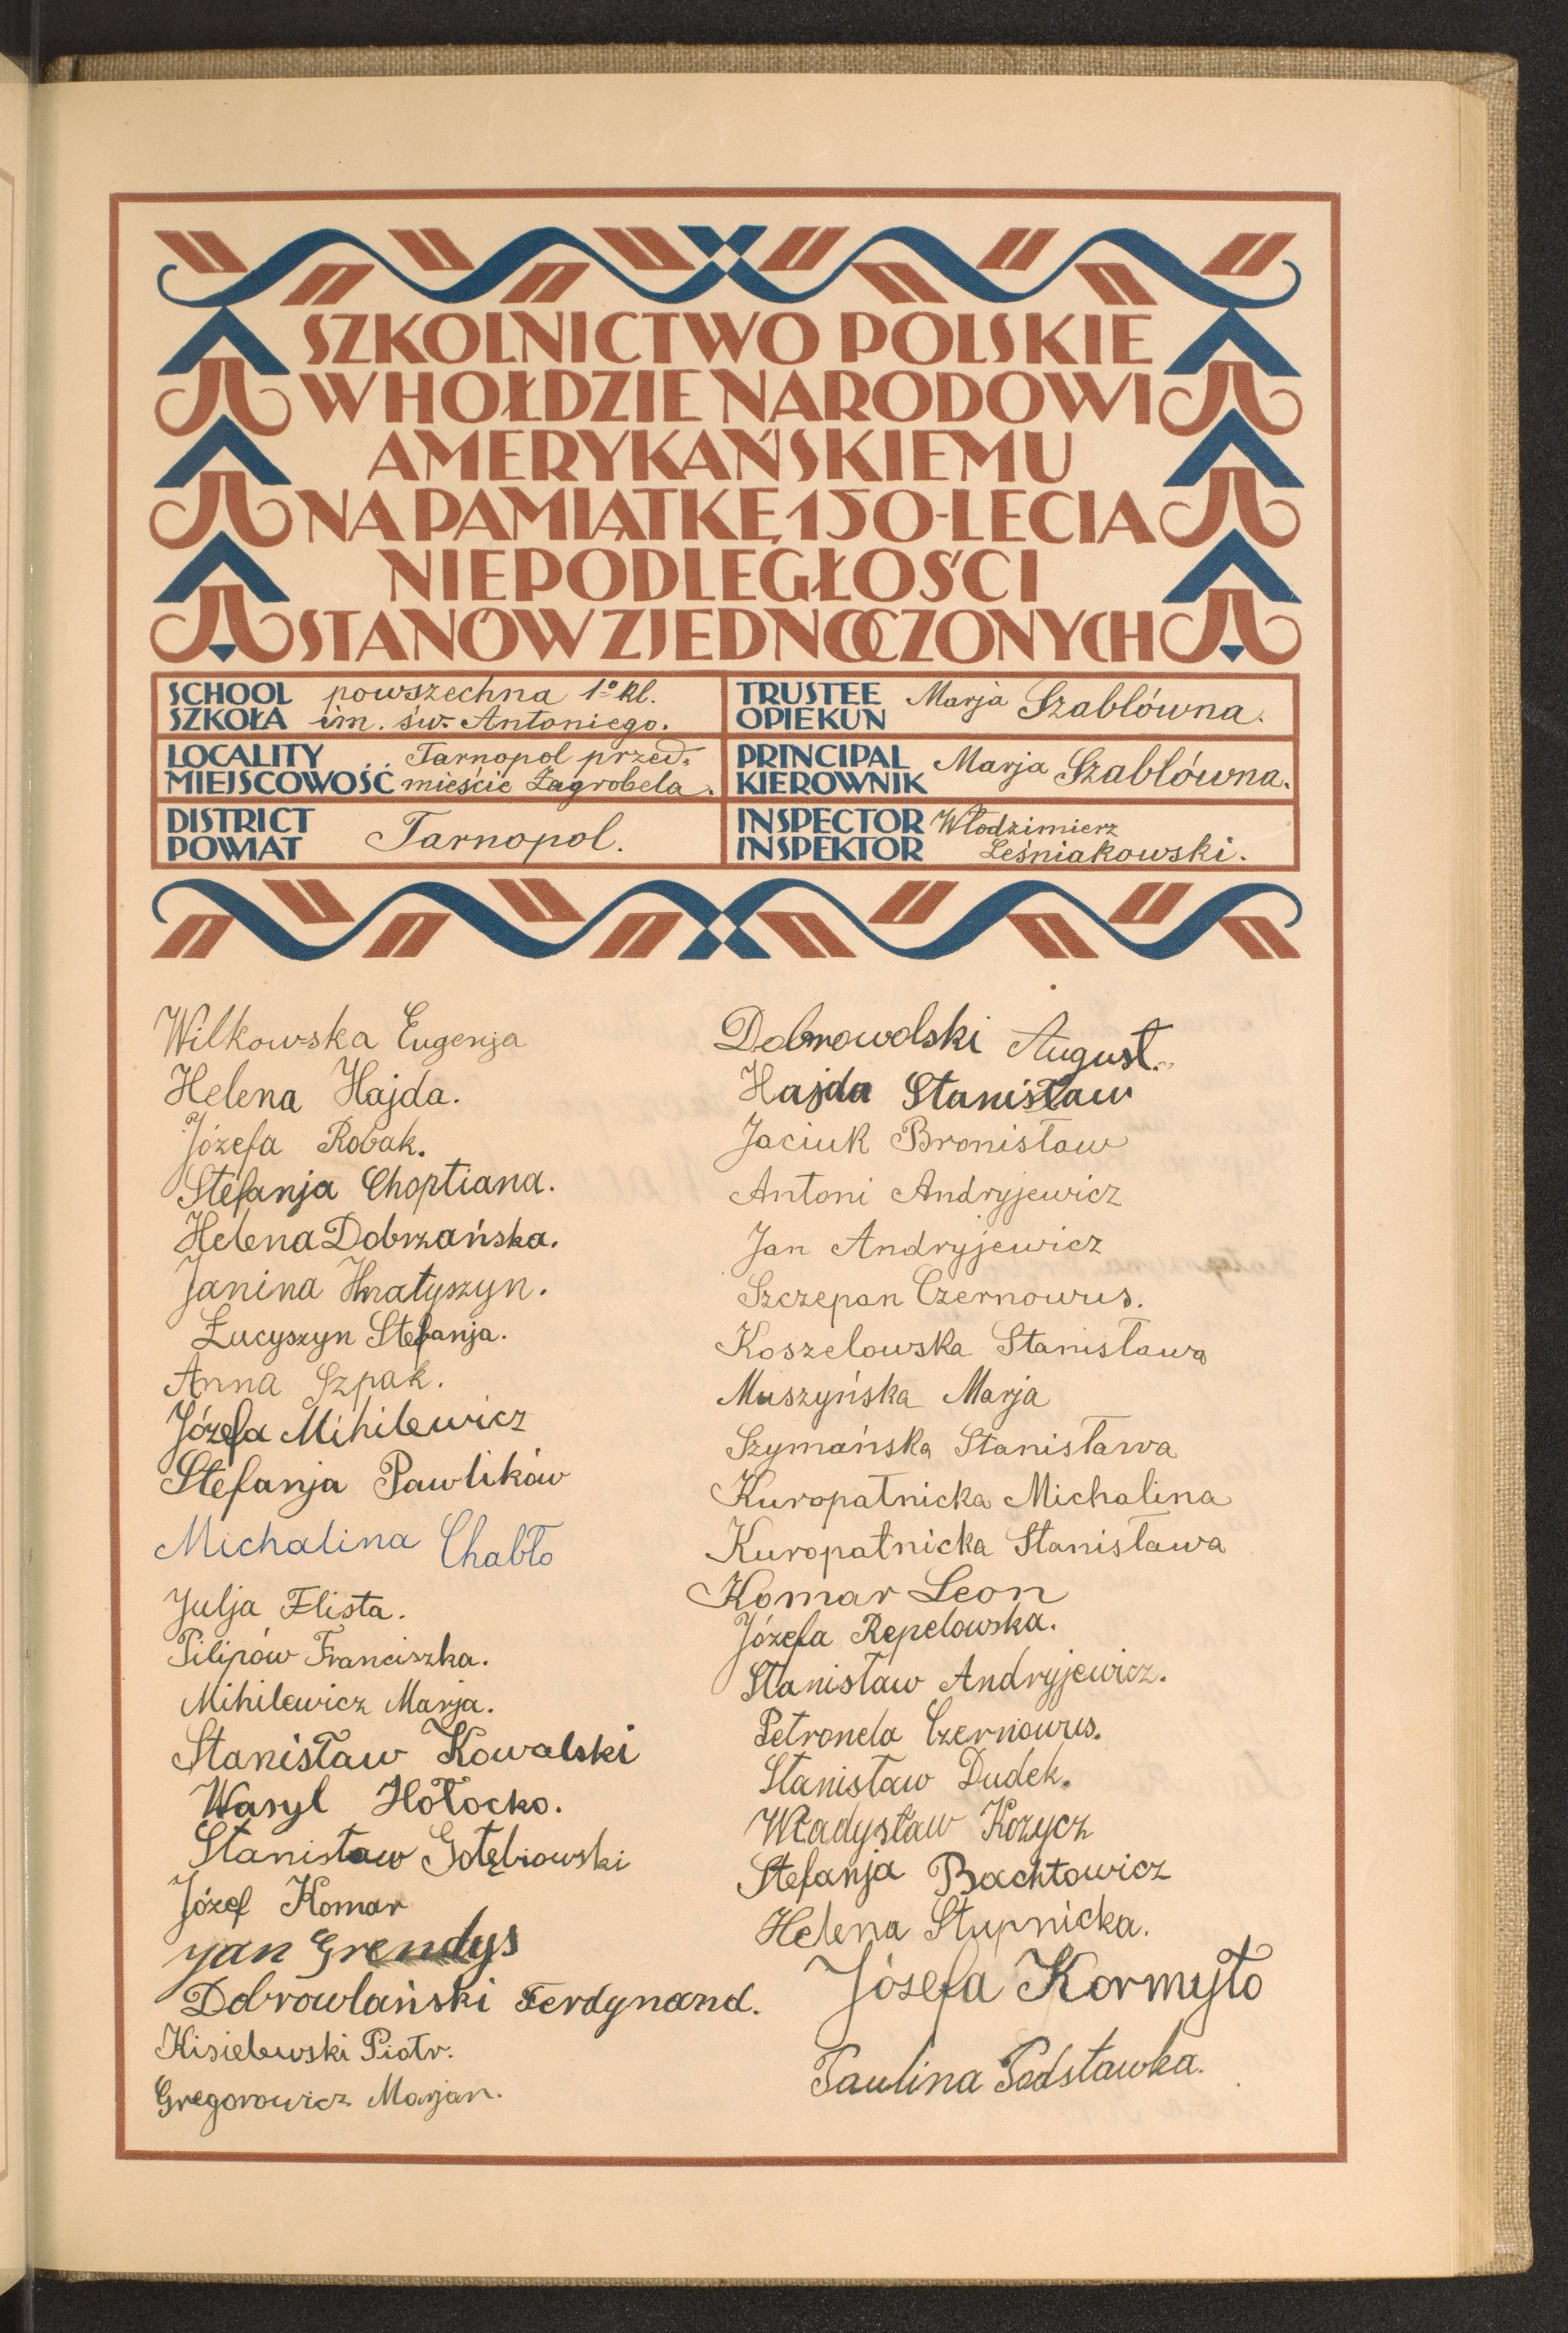 SZKOLNICTWO POLSKIE
W HOŁDZIE NARODOWI
AMERYKAŃSKIEMU
NA PAMIĄTKĘ 150-LECIA
NIEPODLEGŁOŚCI
STANÓW ZJEDNOCZONYCH
SCHOOL powszechna 1º kl.
SZKOŁA im. św. Antoniego.
LOCALITY Tarnopol przed-
MIEJSCOWOŚĆ mieście Zagrobela.
DISTRICT
POWIAT Tarnopol.
TRUSTEE
OPIEKUN Marja Szablówna.
PRINCIPAL
KIEROWNIK Marja Szablówna.
INSPECTOR Włodzimierz
INSPEKTOR Leśniakowski.
Wilkowska Eugenja
Helena Hajda.
Józefa Robak.
Stefanja Choptiana.
Helena Dobrzańska.
Janina Hnatyszyn.
Łucyszyn Stefanja.
Anna Szpak.
Józefa Mihilewicz
Stefanja Pawlików
Michalina Chabło
Julja Flista.
Pilipów Franciszka.
Mihilewicz Marja.
Stanisław Kowalski
Wasyl Hołocko.
Stanisław Gołębiowski
Józef Komar
Jan Grendys
Dobrowlański Ferdynand.
Kisielewski Piotr.
Gregorowicz Marjan.
Dobrowolski August.
Hajda Stanisław
Jaciuk Bronisław
Antoni Andryjewicz
Jan Andryjewicz
Szczepan Czernowus.
Koszelowska Stanisława
Muszyńska Marja
Szymańska Stanisława
Kuropatnicka Michalina
Kuropatnicka Stanisława
Komar Leon
Józefa Repelowska.
Stanisław Andryjewicz.
Petronela Czernowus.
Stanisław Dudek.
Władysław Kozycz
Stefanja Bachtowicz
Helena Stupnicka.
Józefa Kormyło
Paulina Podstawka.